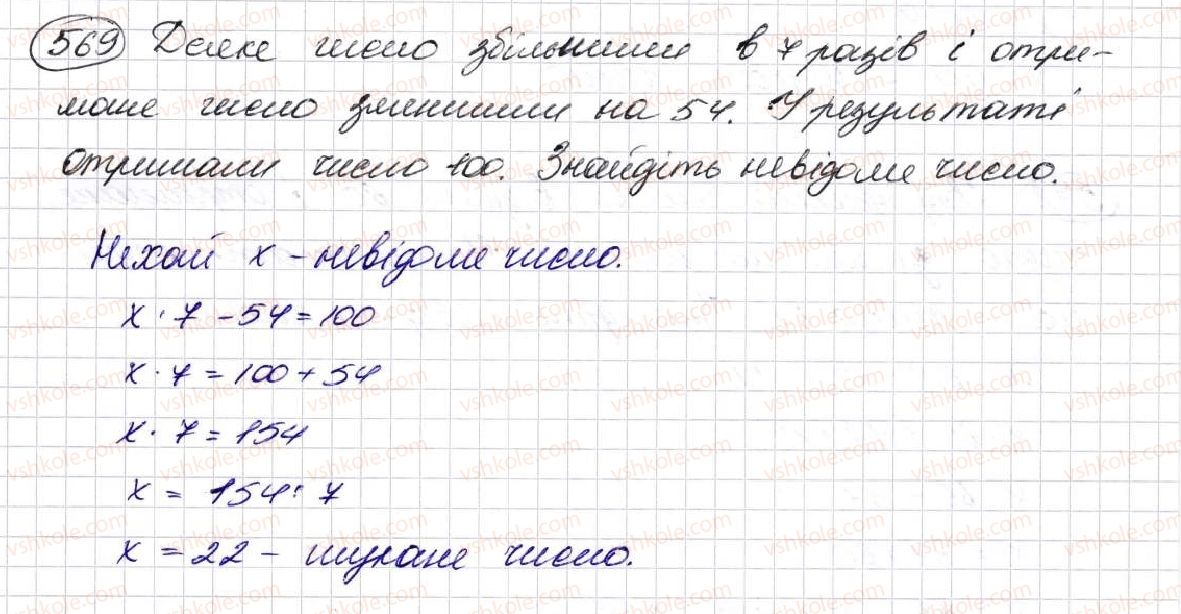 569 Деяке число збільшили в 7 разів і отри-
мане число зменшили на 54. У результаті
отримали число 100. Знайдіть невідоме число.
Нехай x - невідоме число.
x · 7 - 54 = 100
x · 7 = 100 + 54
x · 7 = 154
x = 154 : 7
x = 22 - шукане число.